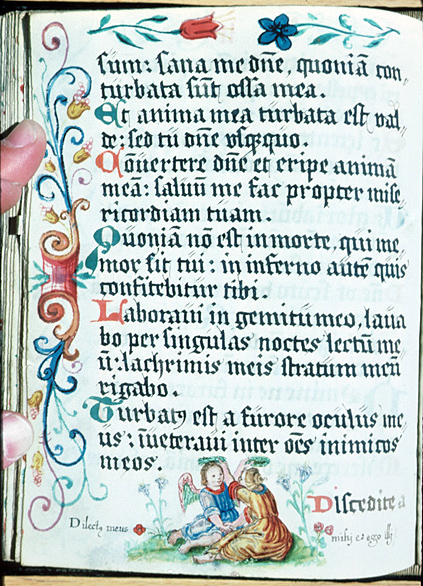 sum: sana me dn̄e, quoniā con„
turbata sūt ossa mea.
Et anima mea turbata est val„
de: sed tu dn̄e vsq̄quo.
Cōuertere dn̄e et eripe animā
meā: saluū me fac propter mise„
ricordiam tuam.
Quoniā nō est in morte, qui me„
mor sit tui: in inferno autē quis
confitebitur tibi.
Laboraui in gemitu meo, laua„
bo per singulas noctes lectū me„
ū: lachrimis meis stratum meū
rigabo.
Turbatꝰ est a furore oculus me„
us: īueteraui inter oēs inimicos
meos.
Discedite a
Dilectꝰ meus
mihi et ego illi